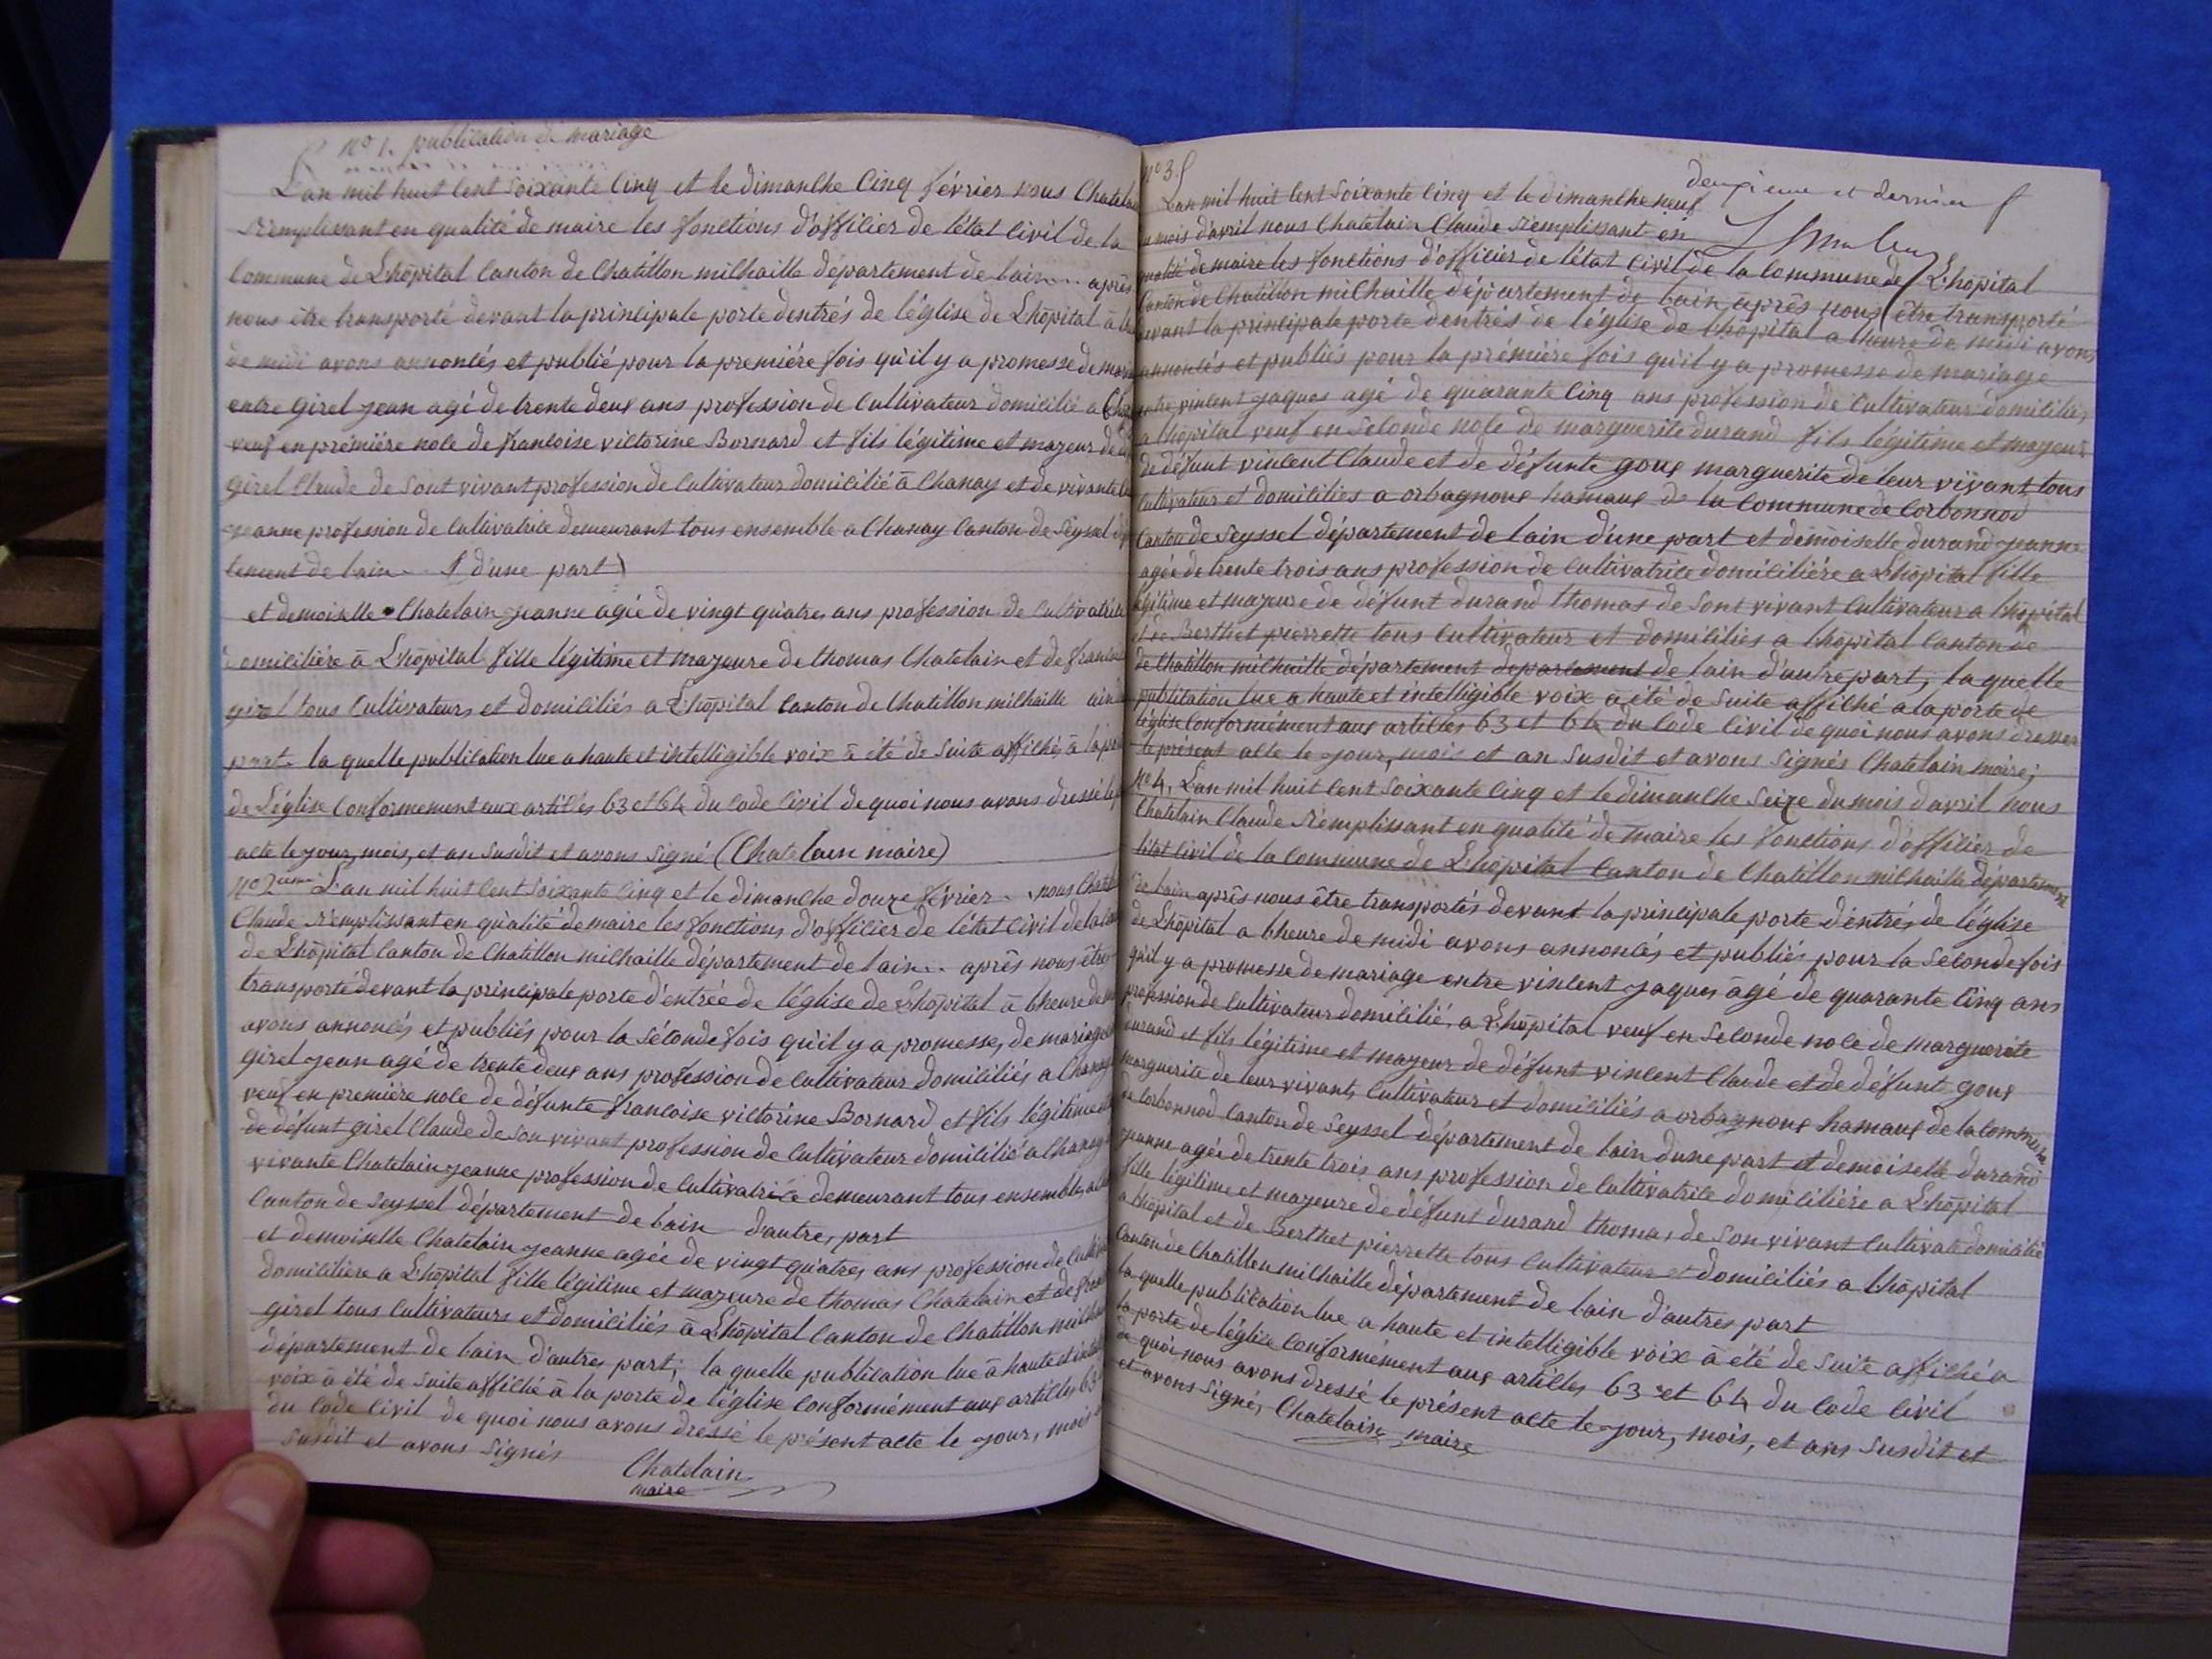 nº 1. publication de mariage
L'an mil huit cent soixante cinq et le dimanche cinq février nous Chatelain
remplissant en qualité de maire les fonctions d'officier de l'état civil de la
commune de Lhôpital canton de Chatillon michaille département de lain .. après
nous être transporté devant la principale porte dentrés de léglise de Lhôpital à
de midi avons annoncés et publié pour la première fois qu'il y a promesse de
entre girel jean agé de trente deux ans profession de cultivateur domicilié a
veuf en première noce de francoise victorine Bornard et fils légitime et mayeur de
girel Claude de sont vivant profession de cultivateur domicilié à Chanay et de vivante
jeanne profession de cultivatrice demeurant tous ensemble a Chanay canton de Seyssel
tement de lain d'une part
et demoiselle Chatelain jeanne agée de vingt quatres ans profession de cultivatrice
domicilière à Lhôpital fille légitime et mayeure de thomas Chatelain et de
girel tous cultivateurs et domiciliés a Lhôpital canton de Chatillon michaille ain
part. la quelle publication lue a haute et intelligible voix à été de suite affiché à la
de Léglise conformement aux articles 63 et 64 du code civil de quoi nous avons dressé le
acte le jour, mois, et an susdit et avons signé (Chatelain maire)
nº 2ième L'an mil huit cent soixante cinq et le dimanche douze février .. nous
Claude remplissant en qualité de maire les fonctions d'officier de l'état civil de la
de Lhôpital canton de Chatillon michaille département de lain .. après nous être
transporté devant la principale porte d'entrée de léglise de Lhôpital à lheure de
avons annoncés et publiés pour la séconde fois qu'il y a promesse, de mariage
girel jean agé de trente deux ans profession de cultivateur domiciliés a
veuf en première noce de défunte francoise victorine Bornard et fils légitime
de défunt girel Claude de son vivant profession de cultivateur domicilié a
vivante Chatelain jeanne profession de cultivatrice demeurant tous ensembles
canton de Seyssel département de lain d'autres part
et demoiselle Chatelain jeanne agée de vingt quatres ans profession de
domicilière a Lhôpital fille légitime et mayeure de thomas Chatelain et de
girel tous cultivateurs et domiciliés à Lhôpital canton de Chatillon
département de lain d'autres part; la quelle publication lue à haute et
voix à été de suite affiché à la porte de léglise conformément aux articles 63
du code civil de quoi nous avons dressé le présent acte le jour, mois
susdit et avons signés
Chatelain
maire
deuxieme et dernier
nº 3
Lan mil huit cent soixante cinq et le dimanche neuf
mois d'avril nous Chatelain Claude remplissant en
qualité de maire les fonctions d'officier de l'état civil de la commune de Lhôpital
canton de Chatillon michaille département de lain après nous être transporté
devant la principale porte dentrés de léglise de Lhôpital a lheure de midi avons
annoncés et publiés pour la première fois qu'il y a promesse de mariage
entre vincent jaques agé de quarante cinq ans profession de cultivateur domicilié,
a Lhôpital veuf en séconde noce de marguerite durand fils légitime et mayeur
de défunt vincent Claude et de défunte goux marguerite de leur vivant tous
cultivateur et domiciliés a orbagnoux hamaux de la commune de Corbonnod
canton de Seyssel département de lain d'une part et demoiselle durand jeanne
agée de trente trois ans profession de cultivatrice domicilière a Lhôpital fille
légitime et mayeure de défunt durand thomas de sont vivant cultivateur a Lhôpital
et de Berthet pierrette tous cultivateur et domiciliés a Lhôpital canton de
de Chatillon michaille département departement de lain d'autre part, la quelle
publication lue a haute et intelligible voix a été de suite affiché a la porte de
léglise conformément aux articles 63 et 64 du code civil de quoi nous avons dresser
le présent acte le jour, mois et an susdit et avons signés Chatelain maire;
nº 4, Lan mil huit cent soixante cinq et le dimanche seize du mois d'avril nous
Chatelain Claude remplissant en qualité de maire les fonctions d'officier de
létat civil de la commune de Lhôpital canton de Chatillon michaille département
de lain après nous être transportés devant la principale porte d'entrés de léglise
de Lhôpital a lheure de midi avons annoncés et publiés pour la seconde fois
qu'il y a promesse de mariage entre vincent jaques âgé de quarante cinq ans
profession de cultivateur domicilié, a Lhôpital veuf en seconde noce de marguerite
durand et fils légitime et mayeur de défunt vincent Claude et de défunt goux
marguerite de leur vivant, cultivateur et domiciliés a orbagnoux hamaux de la commune
de Corbonnod canton de Seyssel département de lain d'une part et demoiselle durand
jeanne agée de trente trois ans profession de cultivatrice domicilière a Lhôpital
fille légitime et mayeure de défunt durand thomas de son vivant cultivate domicilié
a Lhôpital et de Berthet pierrette tous cultivateur et domiciliés a Lhôpital
canton de Chatillon michaille département de lain d'autres part
la quelle publication lue a haute et intelligible voix à été de suite affiché a
la porte de léglise conformément aux articles 63 et 64 du code civil
de quoi nous avons dressé le présent acte le jour, mois, et ans susdit et
et avons signé, Chatelain maire